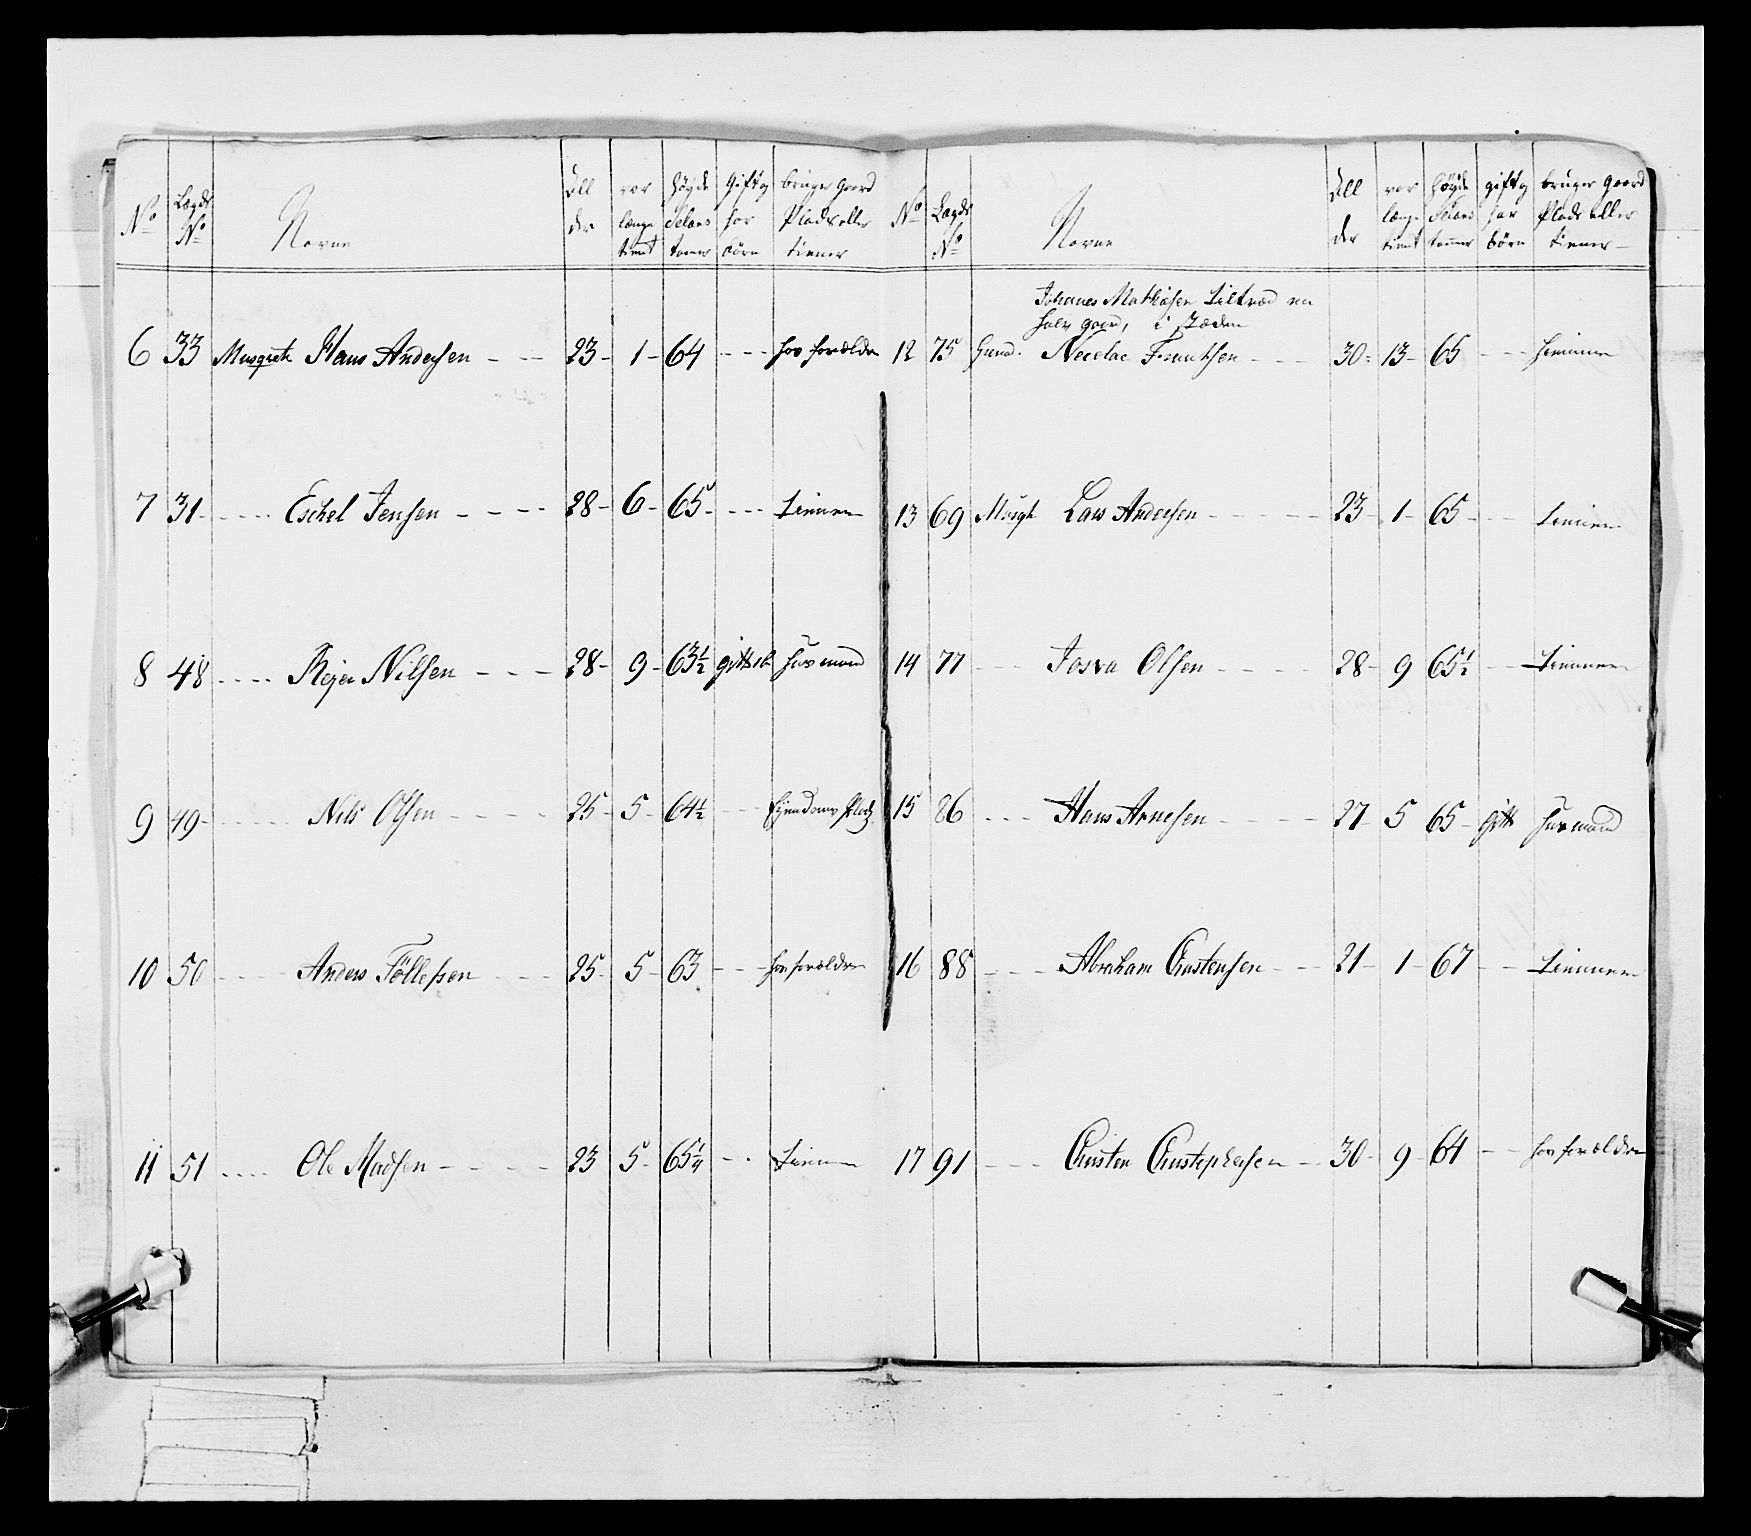 No | Lægds No | Navne | All der | vor længe tient | Høyde Selans tomer | Gift og har börn | bruger Gaard Plads eller tiener
6 | 33 | Musqvet: Hans Andersen - - | 23 - | 1 - | 64 | - - - | hos forældre
7 | 31 - | - - - - Eschel Jensen - - - - | 28 - | 6 - | 65 - | - - - | tienner
8 | 48 | - - - - Rejer Nilsen - - - | 28 - | 9 - | 63½ | gift 1 b | husmand
9 | 49 - | - - - - - Nils Olsen - - - - | 25 - | 5 - | 64½ | - - - | Ejendoms Plads
10 | 50 | - - - - Anders Föllefsen - - - | 25 - | 5 - | 63 | - - - | hos forældre
11 | 51 | - - - - Ole Madsen - - - - - | 23 | 5 - | 65¼ | - - | tienner
No | Lægds No | Navne | All der | vor længe tient | Høyde Selans tomer | gift og har börn | bruger Gaard Plads eller tiener
Johanes Mathiasen tiltræd en
halv gaard, i stæden
12 | 75 | Nicolai Frantsen - - - | 30 - | 13 - | 65 | - - - | hiemme
13 | 69 | Musqt Lars Andersen - - - - - | 23 - | 1 - | 65 - | - - | tienner
14 | 77 | - - - Josva Olsen - - - - | 28 - | 9 | 65½ | - - | tienner
15 | 86 | - - - Hans Arnesen - - - - - | 27 - | 5 | 65 - | gift | husmand
16 | 88 | - - - Abraham Christensen - - | 21 - | 1 - | 67 | - - | tienner
17 | 91 | - - - Christen Christophersen - - | 30 - | 9 - | 64 | - - | hos forældre